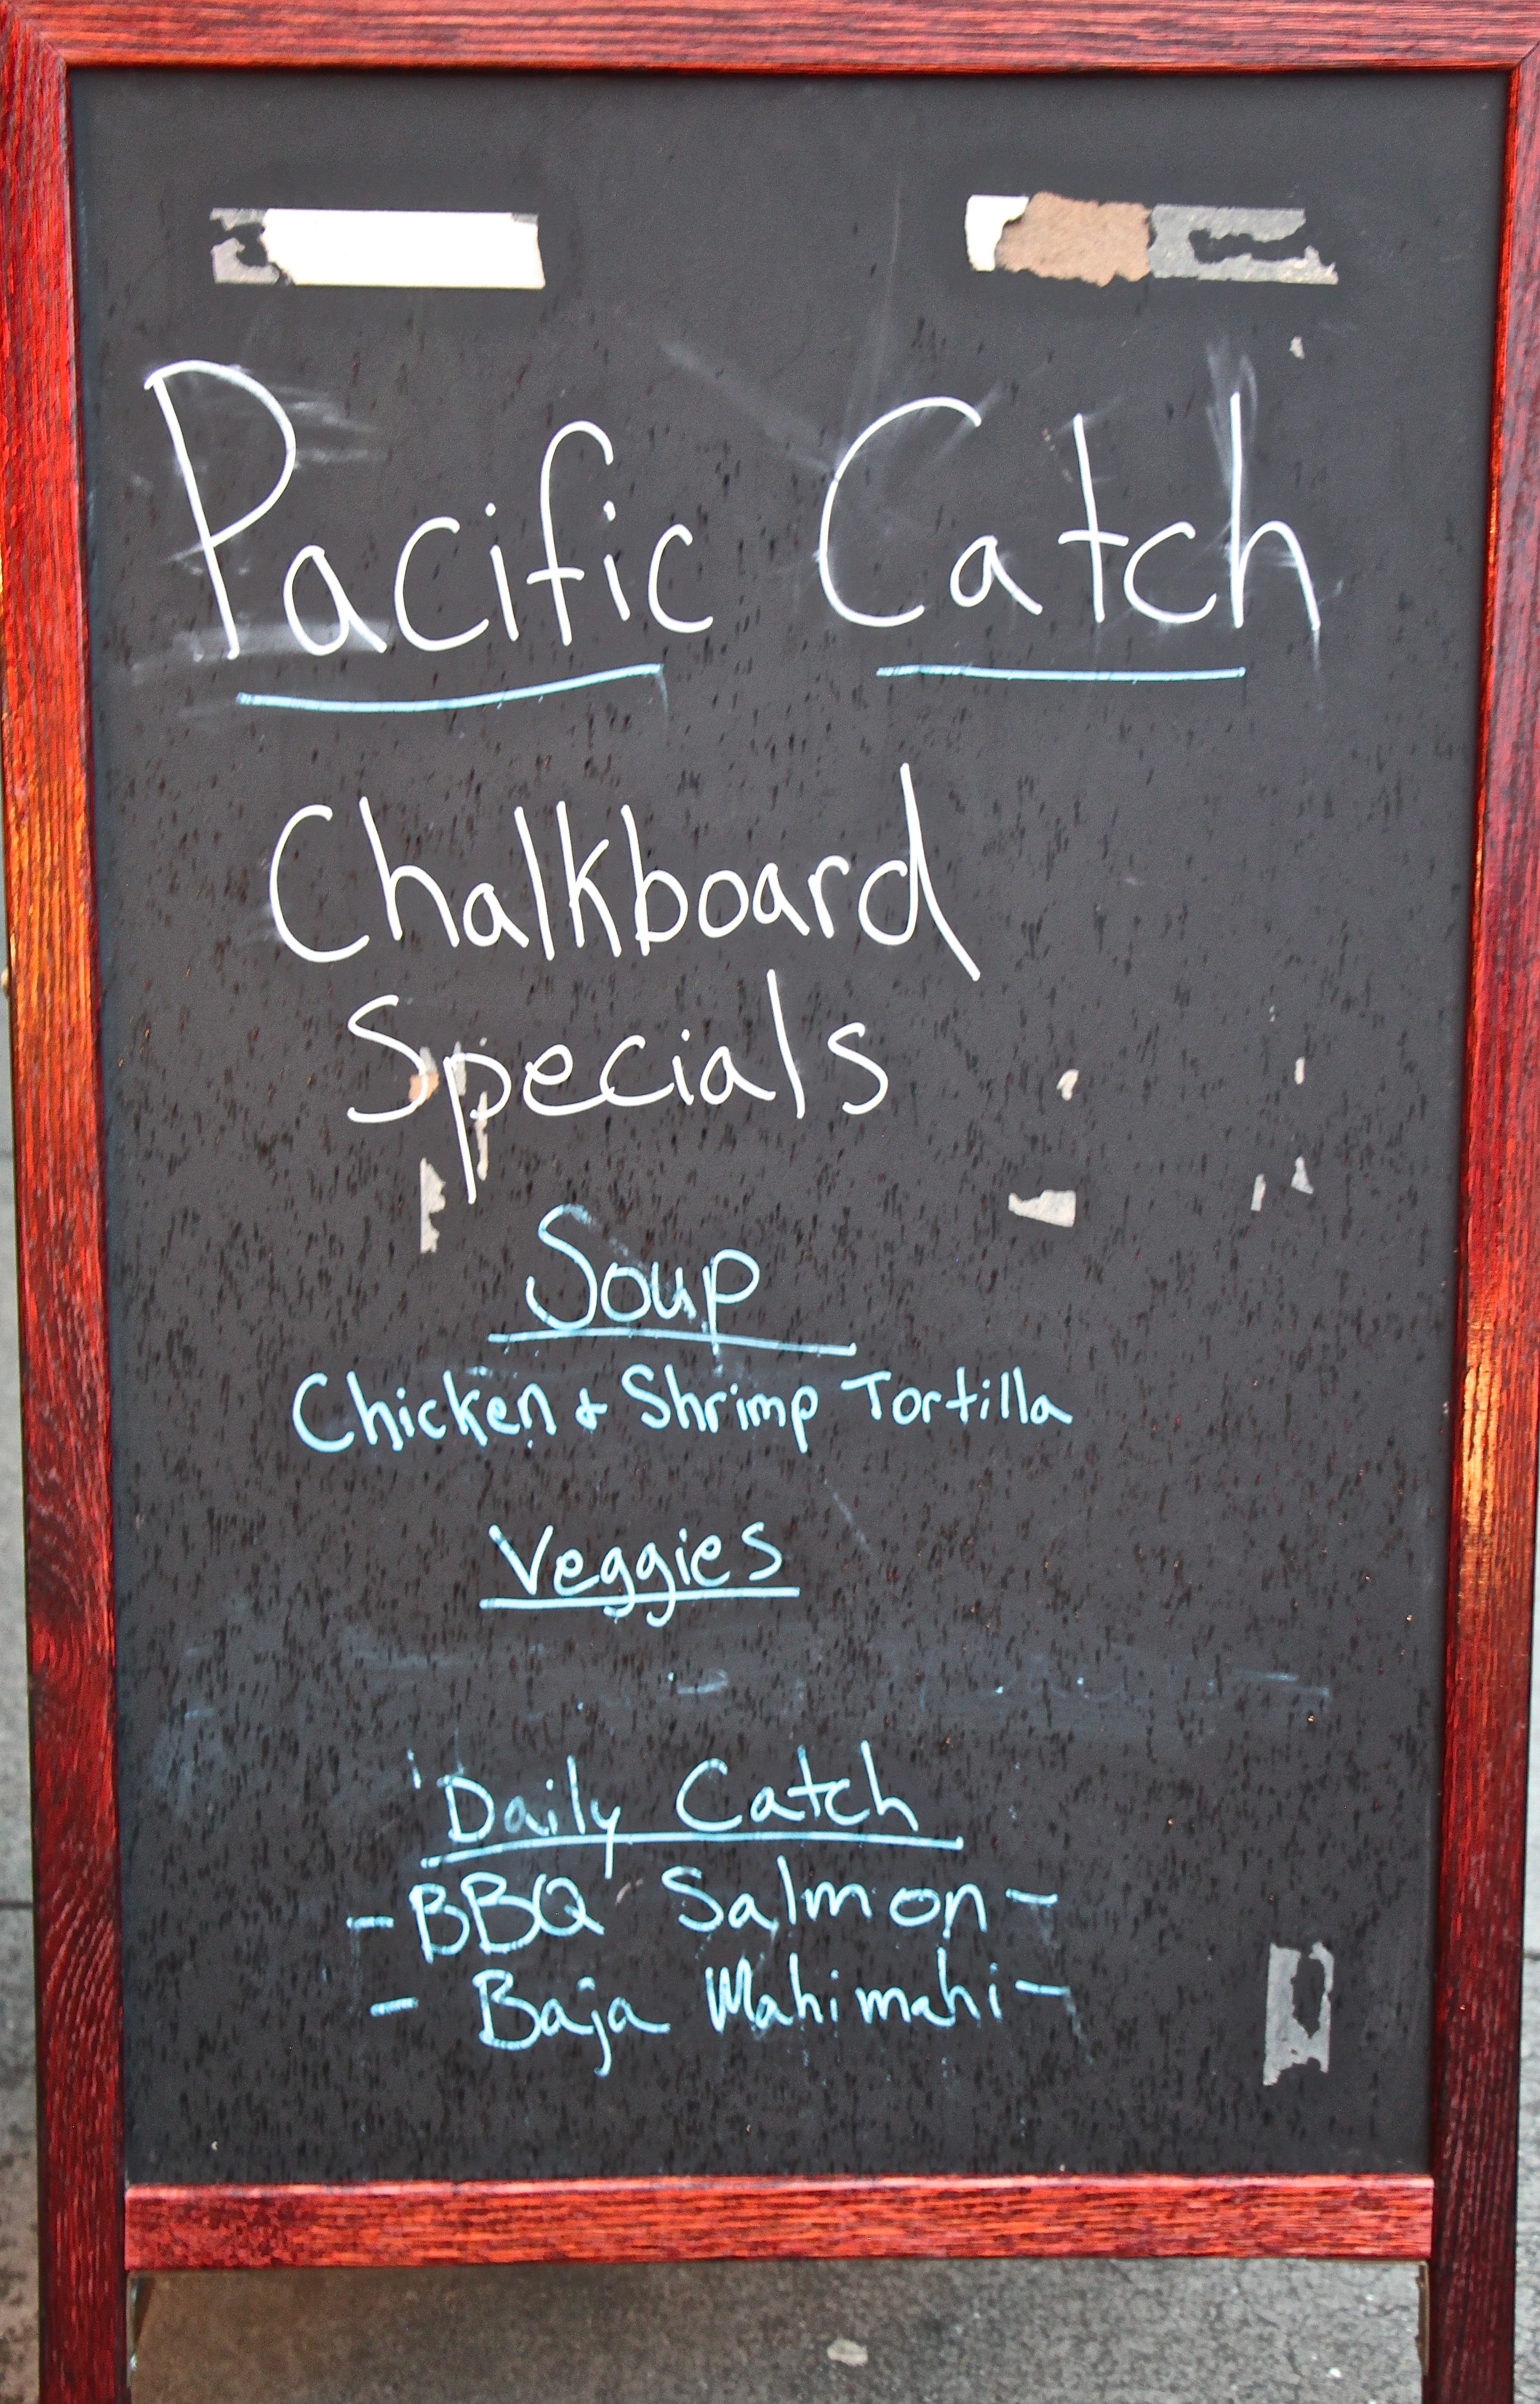 Pacific Catch
Chalkboard
Specials
Soup
Chicken & Shrimp Tortilla
Veggies
Daily Catch
-BBQ Salmon-
- Baja Mahimahi-